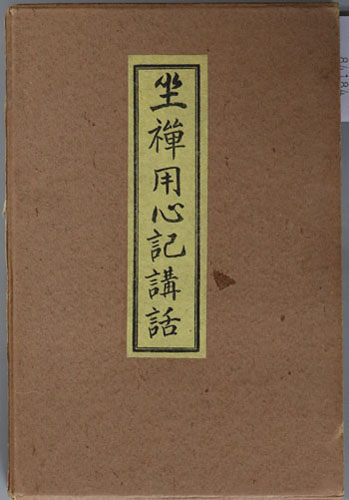 坐禪用心記講話